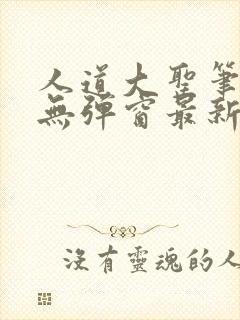 人道大聖筆
無彈窗最新
沒有靈魂的人